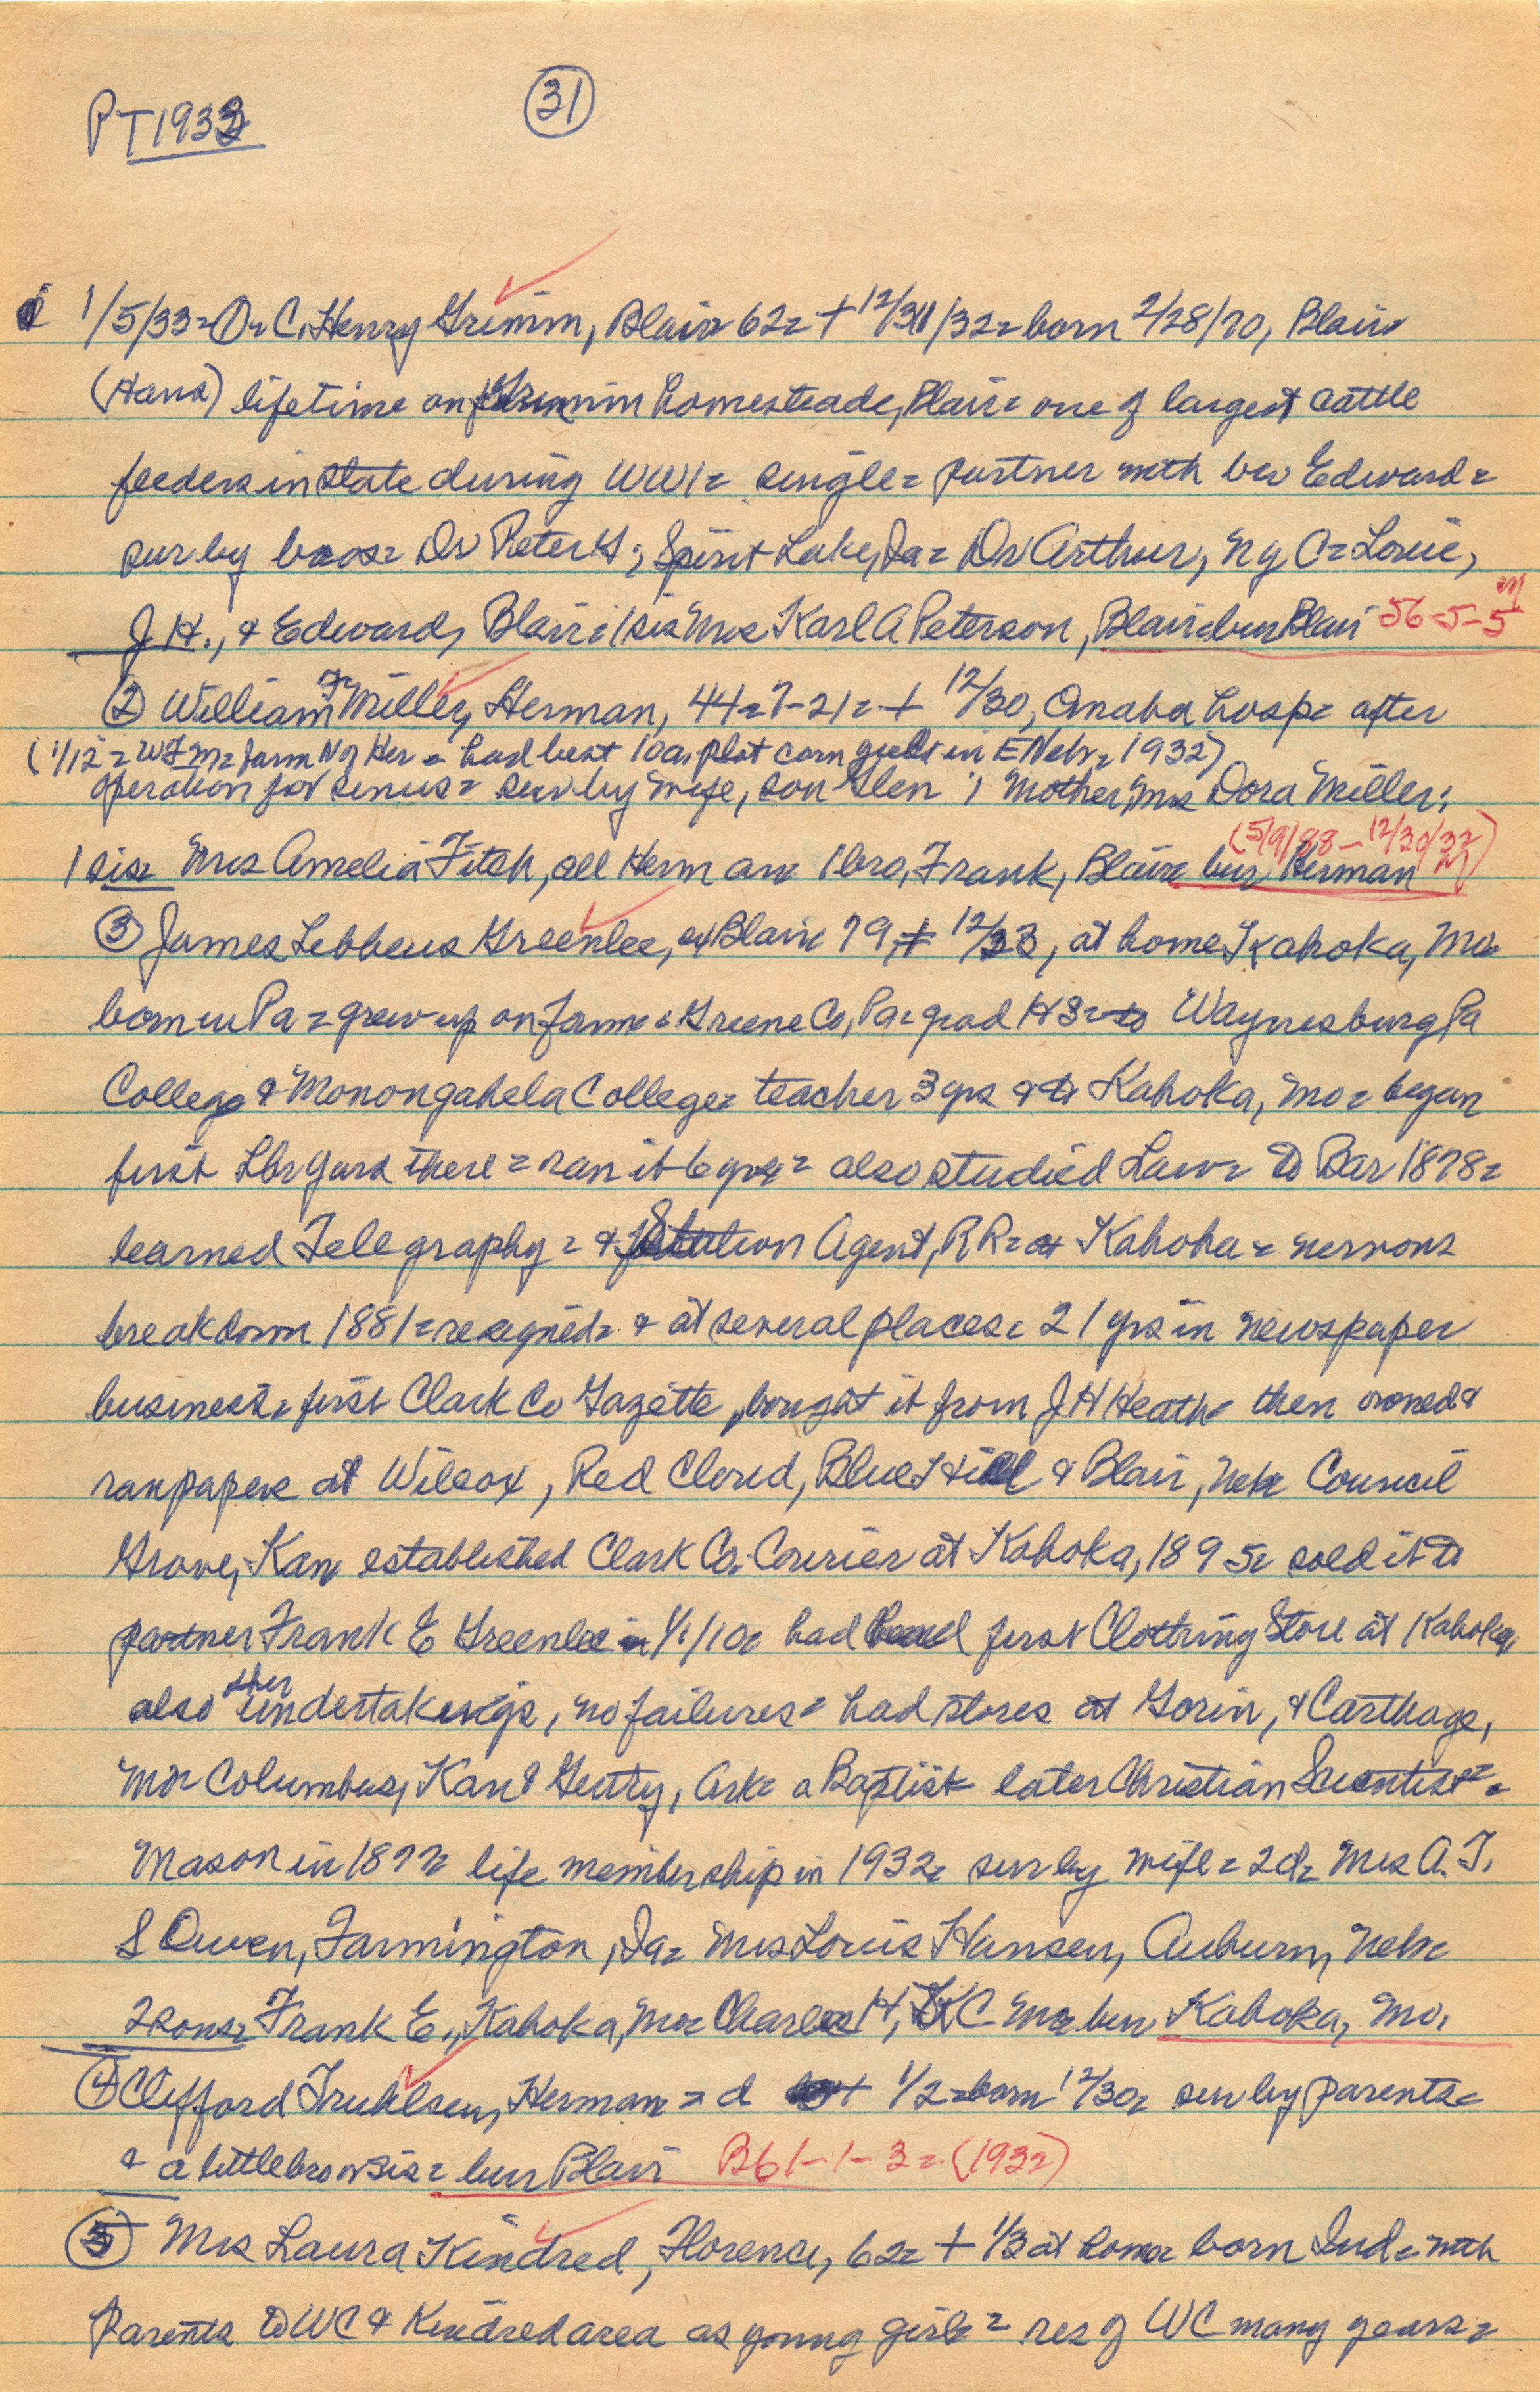 PT 1933
31
1/5/33= 1= C. Henry Grimm, Blair= 62= + 12/31/32= born 2/28/70, Blair=
(Hans) lifetime on Grimm homestead, Blair= one of largest cattle
feeders in state during WW1= single= partner with bro Edward=
sur by bros= Dr Peter H., Spirit Lake, Ia= Dr Arthur, NYC= Louie,
J H., & Edward, Blair= 1 sis Mrs Karl A Peterson, Blair= bur Blair 56-5-5
(2) William F Miller, Herman, 44=7-21= + 12/30, Omaha hosp= after
(1/12= WFM= farm N of Her = had best 10a. plot corn yield in E Neb, 1932)
operation for sinus= sur by wife, son Glen ; Mother, Mrs Dora Miller;
(5/9/88-12/30/32)
1 sis= Mrs Amelia Fitch, all Herman= 1 bro, Frank, Blair= bur Herman
(3) James Lebbeus Greenlee, ex Blair= 79, + 12/23, at home Kahoka, Mo=
born in Pa= grew up on farm= Greene Co, Pa= grad HS= to Waynesburg Pa
College & Monongahela College= teacher 3 yrs & to Kahoka, Mo= began
first Lbr Yard there= ran it 6 yrs= also studied Law= to Bar 1878=
learned Telegraphy= & Station Agent, RR= at Kahoka= nervous
breakdown 1881= resigned= & at several places= 21 yrs in newspaper
business= first Clark Co Gazette, bought it from J H Heath= then owned &
ran papers at Wilcox, Red Cloud, Blue Hill & Blair, Neb= Council
Grove, Kan= established Clark Co. Courier at Kahoka, 1895= sold it to
partner Frank E Greenlee in 1/1/10= had first Clothing Store at Kahoka,
also other undertakings, no failures= had stores at Gorin, & Carthage,
Mo= Columbus, Kan & Gentry, Ark= a Baptist= later Christian Scientist=
Mason in 1877= life membership in 1932= sur by wife= 2 d= Mrs A. T.
S Owen, Farmington, Ia= Mrs Louis Hansen, Auburn, Neb=
2 sons= Frank E., Kahoka, Mo= Charles H, KC Mo= bur Kahoka, Mo.
(4) Clifford Truhlsen, Herman= d + 1/2= born 12/30= sur by parents=
& a little bro or sis= bur Blair B61-1-3= (1932)
(5) Mrs Laura Kindred, Florence, 62= + 1/3 at home= born Ind= with
parents to WC & Kindred area as young girl= res of WC many years=